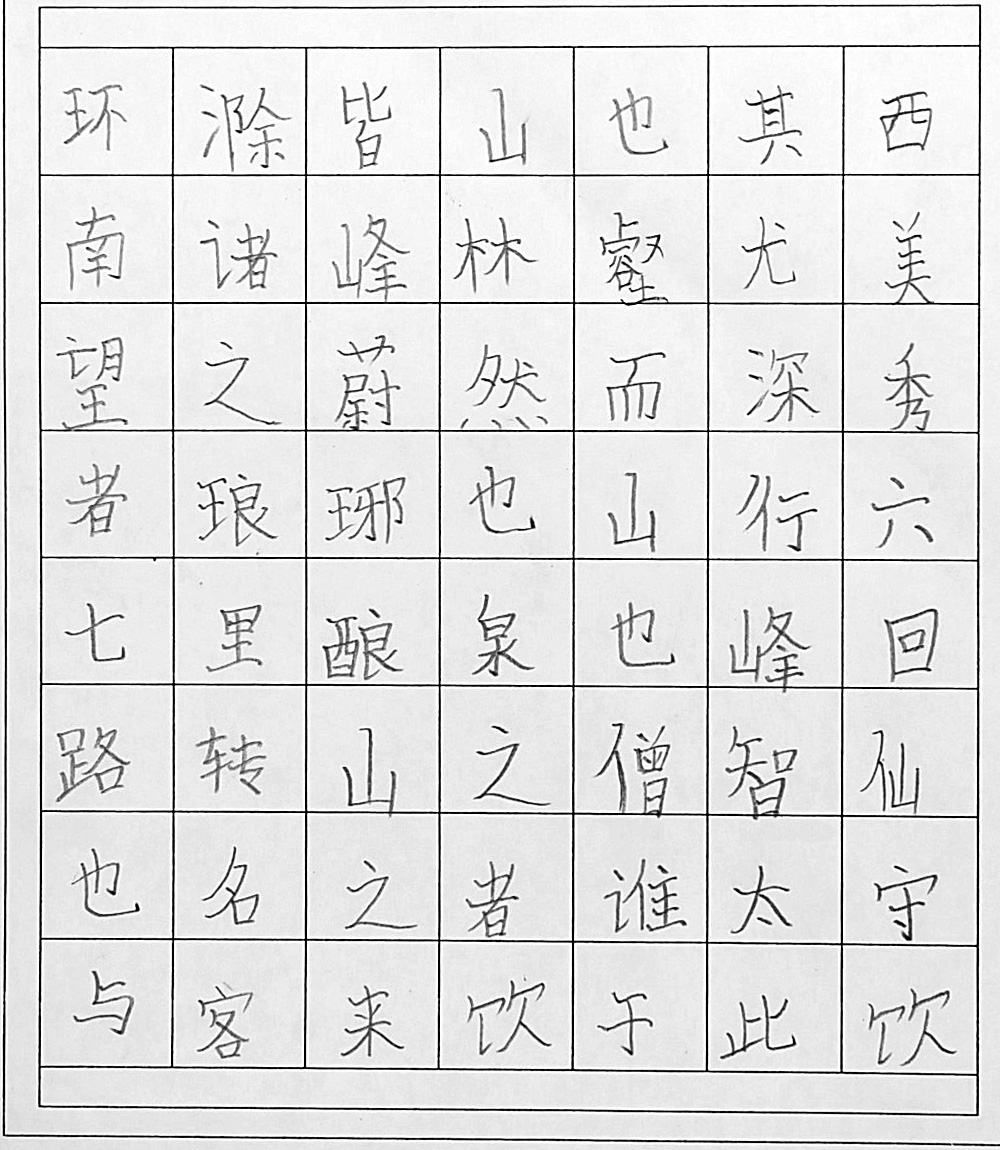 环滁皆山也其西
南诸峰林壑尤美
望之蔚然而深秀
者琅琊也山行六
七里酿泉也峰回
路转山之僧智仙
也名之者谁太守
与客来饮于此饮